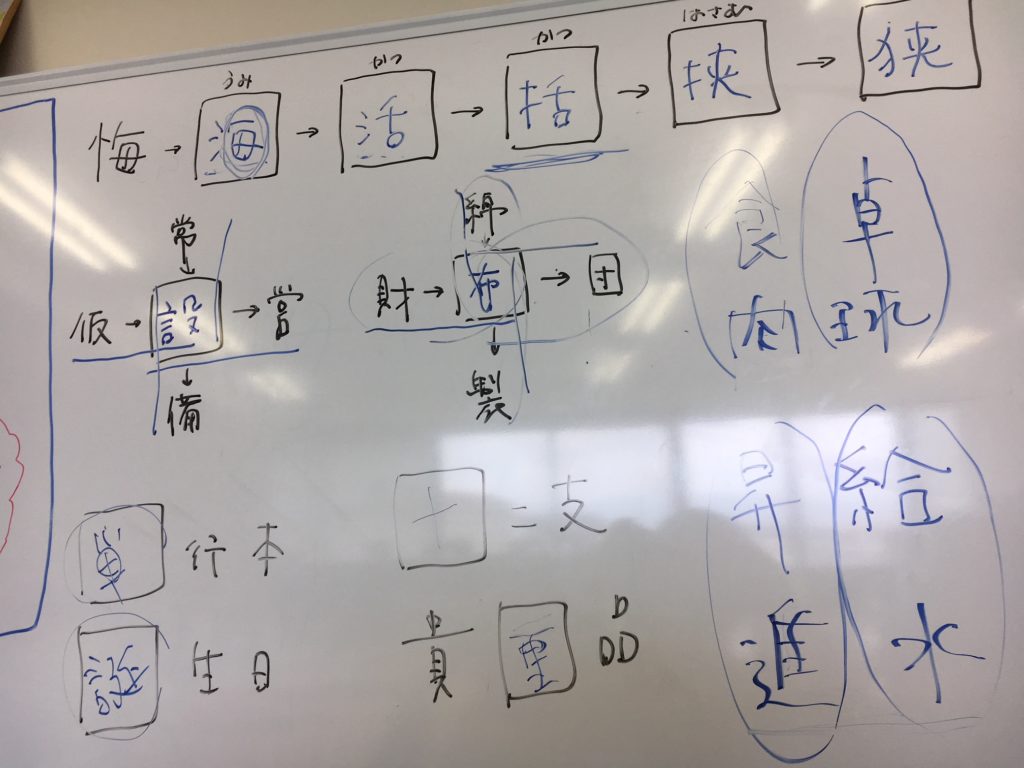 うみ かつ かつ はさむ
悔 → 海 → 活 → 括 → 挟 → 狭
常
↓
仮 → 設 → 営
↓
備
綿
↓
財 → 布 → 団
↓
製
食肉
卓球
単行本
十二支
誕生日
貴重品
昇進
給水